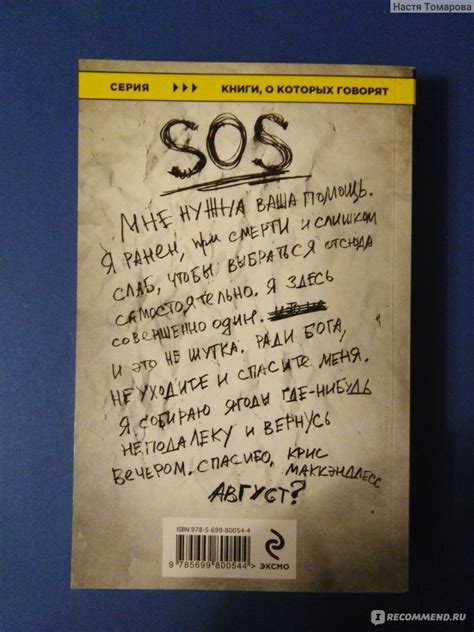 Настя Томарова
СЕРИЯ КНИГИ, О КОТОРЫХ ГОВОРЯТ
SOS
МНЕ НУЖНА ВАША ПОМОЩЬ.
Я РАНЕН, ПРИ СМЕРТИ И СЛИШКОМ
СЛАБ, ЧТОБЫ ВЫБРАТЬСЯ ОТСЮДА
САМОСТОЯТЕЛЬНО. Я ЗДЕСЬ
СОВЕРШЕННО ОДИН.
И ЭТО НЕ ШУТКА. РАДИ БОГА,
НЕ УХОДИТЕ И СПАСИТЕ МЕНЯ.
Я СОБИРАЮ ЯГОДЫ ГДЕ-НИБУДЬ
НЕПОДАЛЕКУ И ВЕРНУСЬ
ВЕЧЕРОМ. СПАСИБО, КРИС
МАККЭНДЛЕСС
АВГУСТ?
ISBN 978-5-699-80054-4
9 785699 800544
ЭКСМО
I RECOMMEND.RU